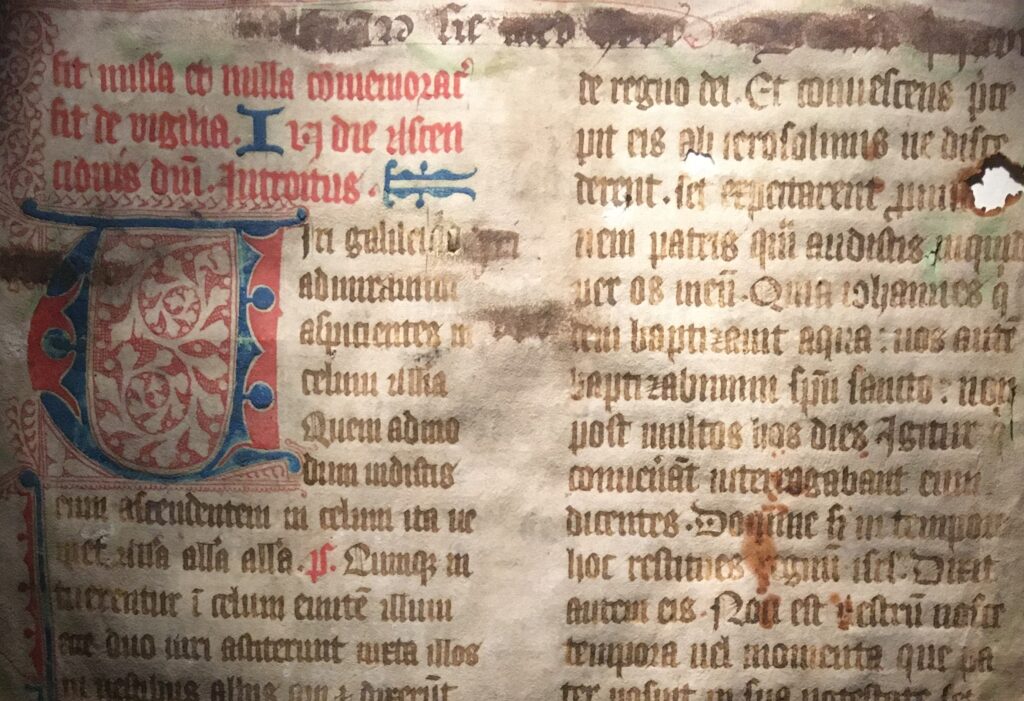 sit missa et nulla comemorat
fit de vigilia. In die Ascen
cionis dni. Introitus.
Viri galilei
admiramini
aspicientes in
celum
Quem admo
dum vidistis
eum ascendentem in celum ita ve
niet. alla alla. ps. Cumqz in
tuerentur i celum eunte illum
ecce duo viri astiterunt iuxta illos
in vestibus albis
de regno dei. Et convescens pre
pit eis ab ierosolimis ne disce
derent. set expectarent promis
nem patris qua audistis inquit
per os meu. Quia iohannes q
tem baptizavit aqua: vos aute
baptizabimini spu sancto: non
post multos hos dies Igitur q
convenerat interrogabant eum
dicentes. Domine si in tempore
hoc restitues regnu isrl. Dixit
autem eis. Non est vestru nosce
tempora vel momenta que pa
ter posuit in sua potestate set